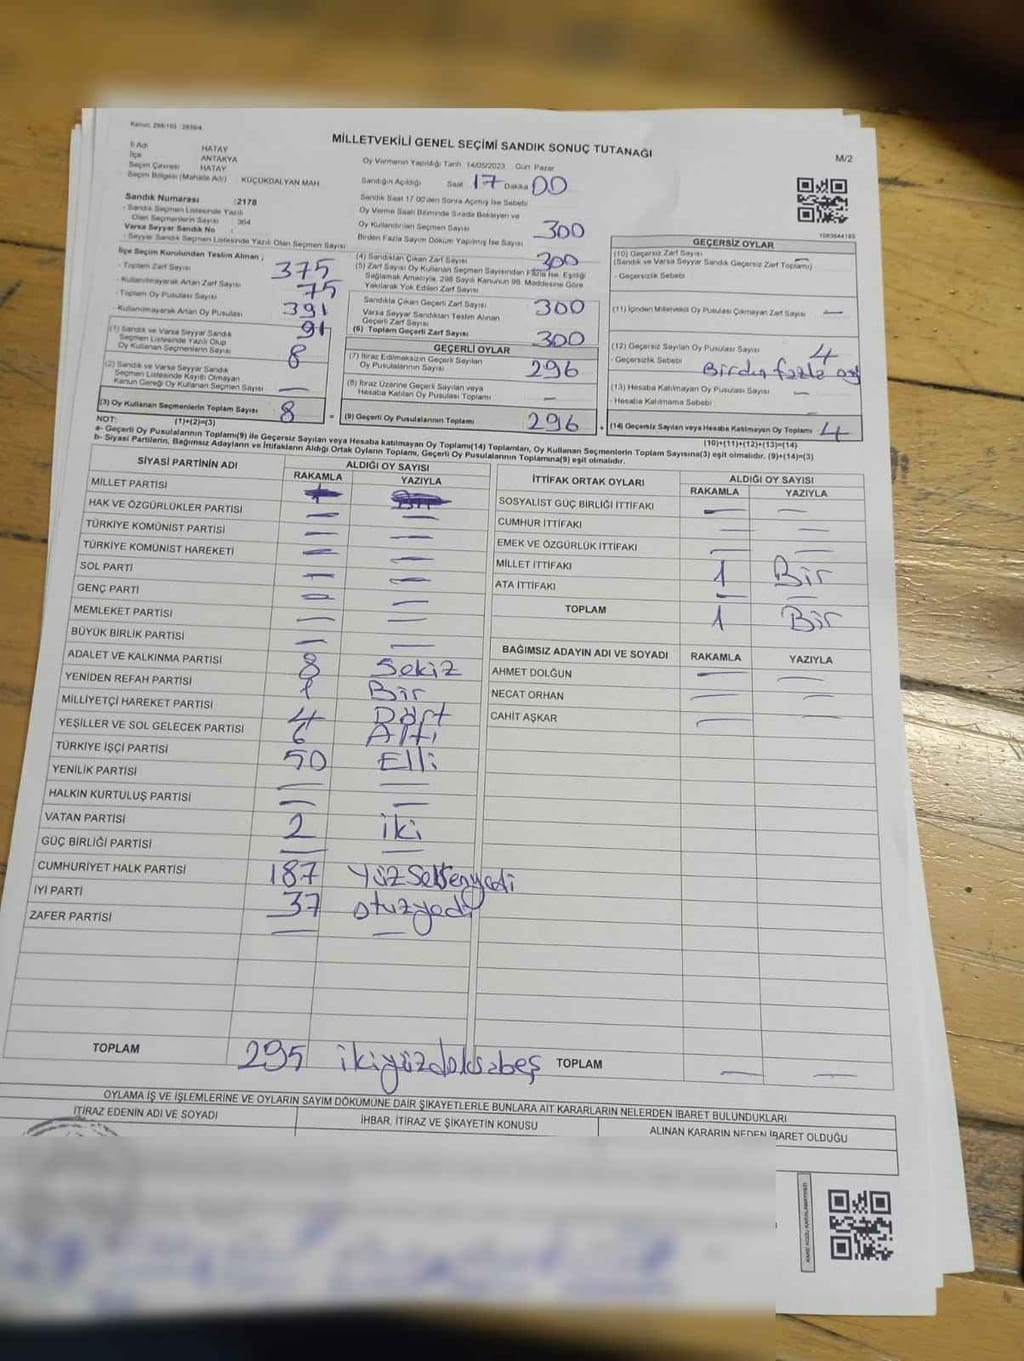 Kanun: 298/105 : 2839/4
MİLLETVEKİLİ GENEL SEÇİMİ SANDIK SONUÇ TUTANAĞI
M/2
İl Adı HATAY
İlçe ANTAKYA
Seçim Çevresi HATAY
Seçim Bölgesi (Mahalle Adı) KÜÇÜKDALYAN MAH
Oy Vermenin Yapıldığı Tarih 14/05/2023 Gün: Pazar
Sandığın Açıldığı Saat 17 Dakika 00
Sandık Numarası :2178
- Sandık Seçmen Listesinde Yazılı
Olan Seçmenlerin Sayısı : 364
Varsa Seyyar Sandık No :
- Seyyar Sandık Seçmen Listesinde Yazılı Olan Seçmen Sayısı
Sandık Saat 17.00'den Sonra Açılmış İse Sebebi
Oy Verme Saati Bitiminde Sırada Bekleyen ve
Oy Kullandırılan Seçmen Sayısı 300
Birden Fazla Sayım Döküm Yapılmış İse Sayısı
İlçe Seçim Kurulundan Teslim Alınan ;
- Toplam Zarf Sayısı 375
- Kullanılmayarak Artan Zarf Sayısı 75
- Toplam Oy Pusulası Sayısı 391
- Kullanılmayarak Artan Oy Pusulası 91
(1) Sandık ve Varsa Seyyar Sandık
Seçmen Listesinde Yazılı Olup
Oy Kullanan Seçmenlerin Sayısı 8
(2) Sandık ve Varsa Seyyar Sandık
Seçmen Listesinde Kayıtlı Olmayan
Kanun Gereği Oy Kullanan Seçmen Sayısı —
(3) Oy Kullanan Seçmenlerin Toplam Sayısı 8
(1)+(2)=(3)
(4) Sandıktan Çıkan Zarf Sayısı 300
(5) Zarf Sayısı Oy Kullanan Seçmen Sayısından Fazla İse, Eşitliği
Sağlamak Amacıyla, 298 Sayılı Kanunun 98. Maddesine Göre
Yakılarak Yok Edilen Zarf Sayısı
Sandıkta Çıkan Geçerli Zarf Sayısı 300
Varsa Seyyar Sandıktan Teslim Alınan
Geçerli Zarf Sayısı
(6) Toplam Geçerli Zarf Sayısı 300
GEÇERLİ OYLAR
(7) İtiraz Edilmeksizin Geçerli Sayılan
Oy Pusulası Sayısı 296
(8) İtiraz Üzerine Geçerli Sayılan veya
Hesaba Katılan Oy Pusulası Toplamı —
(9) Geçerli Oy Pusulalarının Toplamı 296
1083644183
GEÇERSİZ OYLAR
(10) Geçersiz Zarf Sayısı —
(Sandık ve Varsa Seyyar Sandık Geçersiz Zarf Toplamı)
- Geçersizlik Sebebi
(11) İçinden Milletvekili Oy Pusulası Çıkmayan Zarf Sayısı —
(12) Geçersiz Sayılan Oy Pusulası Sayısı 4
- Geçersizlik Sebebi Birden fazla oy
(13) Hesaba Katılmayan Oy Pusulası Sayısı —
- Hesaba Katılmama Sebebi —
(14) Geçersiz Sayılan veya Hesaba Katılmayan Oy Toplamı 4
(10)+(11)+(12)+(13)=(14)
NOT:
a- Geçerli Oy Pusulalarının Toplamı(9) ile Geçersiz Sayılan veya Hesaba katılmayan Oy Toplamı(14) Toplamları, Oy Kullanan Seçmenlerin Toplam Sayısına(3) eşit olmalıdır. (9)+(14)=(3)
b- Siyasi Partilerin, Bağımsız Adayların ve İttifakların Aldığı Ortak Oyların Toplamı, Geçerli Oy Pusulalarının Toplamına(9) eşit olmalıdır.
SİYASİ PARTİNİN ADI ALDIĞI OY SAYISI
RAKAMLA YAZIYLA
MİLLET PARTİSİ
HAK VE ÖZGÜRLÜKLER PARTİSİ — —
TÜRKİYE KOMÜNİST PARTİSİ — —
TÜRKİYE KOMÜNİST HAREKETİ — —
SOL PARTİ — —
GENÇ PARTİ — —
MEMLEKET PARTİSİ — —
BÜYÜK BİRLİK PARTİSİ — —
ADALET VE KALKINMA PARTİSİ 8 Sekiz
YENİDEN REFAH PARTİSİ 1 Bir
MİLLİYETÇİ HAREKET PARTİSİ 4 Dört
YEŞİLLER VE SOL GELECEK PARTİSİ 6 Altı
TÜRKİYE İŞÇİ PARTİSİ 50 Elli
YENİLİK PARTİSİ — —
HALKIN KURTULUŞ PARTİSİ — —
VATAN PARTİSİ 2 iki
GÜÇ BİRLİĞİ PARTİSİ — —
CUMHURİYET HALK PARTİSİ 187 Yüzseksenyedi
İYİ PARTİ 37 otuzyedi
ZAFER PARTİSİ — —
TOPLAM 295 ikiyüzdoksabeş
İTTİFAK ORTAK OYLARI ALDIĞI OY SAYISI
RAKAMLA YAZIYLA
SOSYALİST GÜÇ BİRLİĞİ İTTİFAKI — —
CUMHUR İTTİFAKI — —
EMEK VE ÖZGÜRLÜK İTTİFAKI — —
MİLLET İTTİFAKI 1 Bir
ATA İTTİFAKI — —
TOPLAM 1 Bir
BAĞIMSIZ ADAYIN ADI VE SOYADI RAKAMLA YAZIYLA
AHMET DOLĞUN — —
NECAT ORHAN — —
CAHİT AŞKAR — —
TOPLAM — —
OYLAMA İŞ VE İŞLEMLERİNE VE OYLARIN SAYIM DÖKÜMÜNE DAİR ŞİKAYETLERLE BUNLARA AİT KARARLARIN NELERDEN İBARET BULUNDUKLARI
İTİRAZ EDENİN ADI VE SOYADI İHBAR, İTİRAZ VE ŞİKAYETİN KONUSU ALINAN KARARIN NEDEN İBARET OLDUĞU